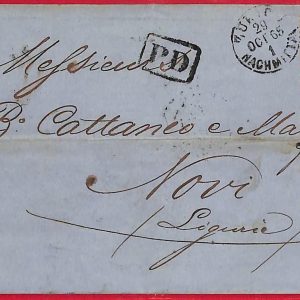 P.D
29
OCT 65
1
NACHMIT
Messieurs
B.o Cattaneo e
Novi
Ligurie